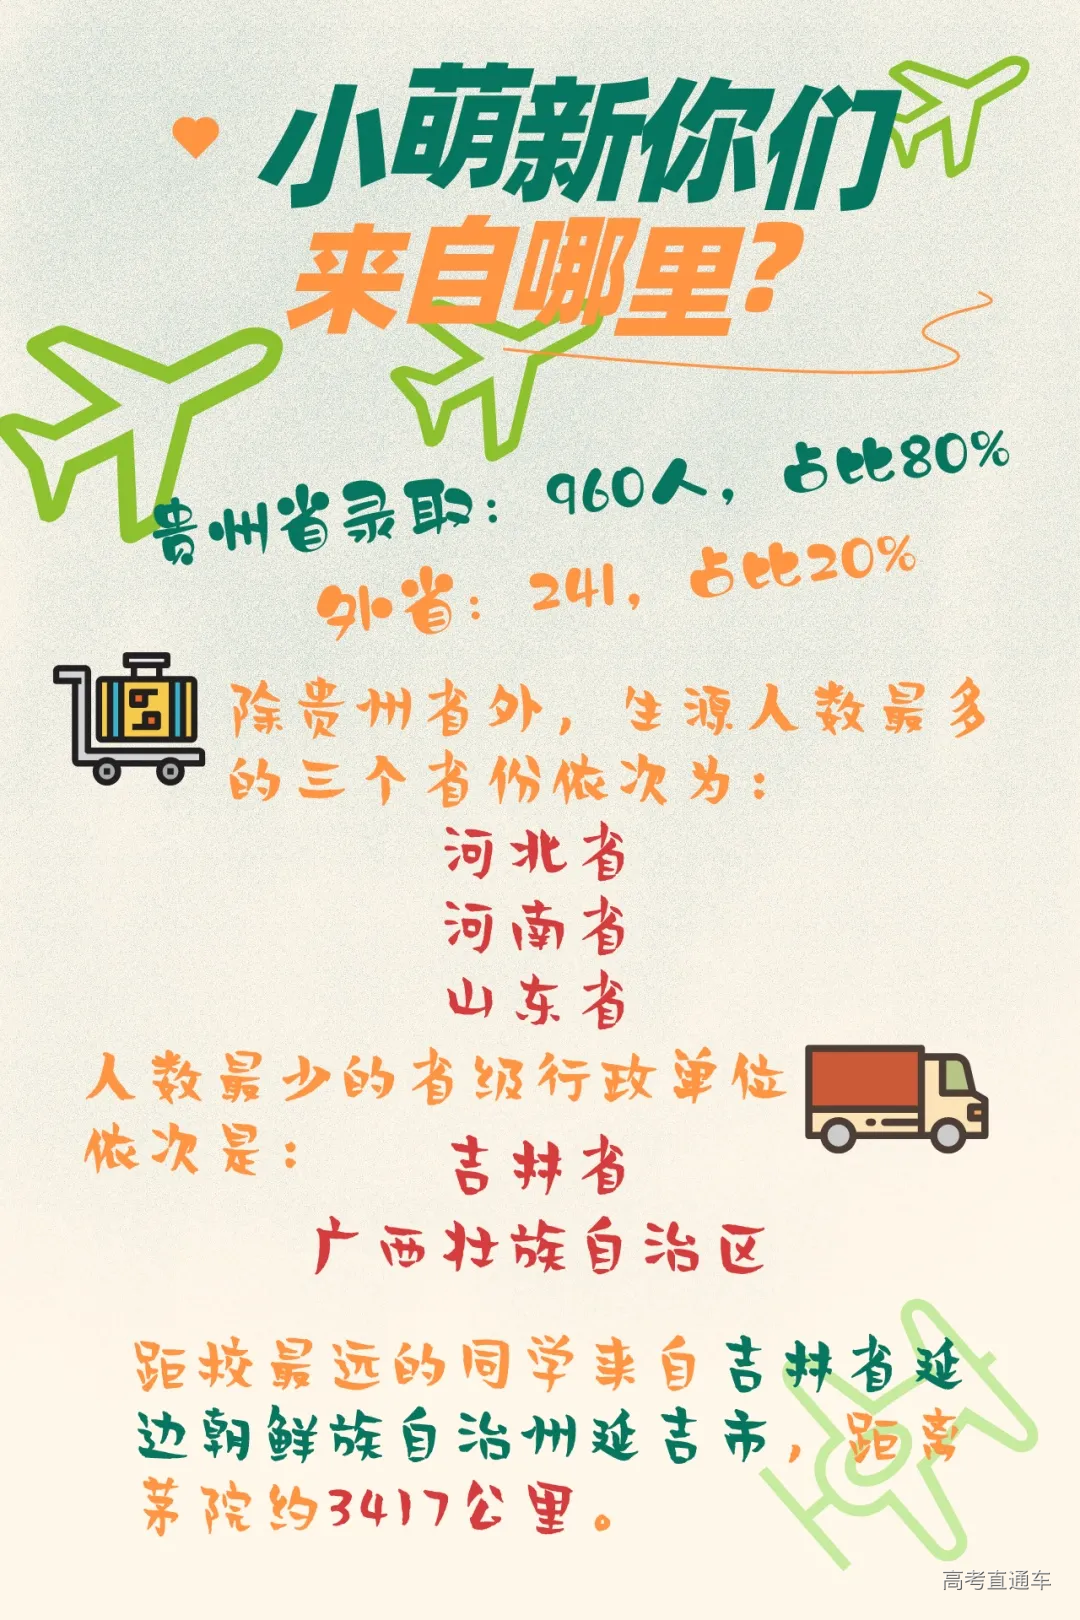 小萌新你们
来自哪里?
贵州省录取：960人，占比80%
外省：241，占比20%
除贵州省外，生源人数最多
的三个省份依次为：
河北省
河南省
山东省
人数最少的省级行政单位
依次是：
吉林省
广西壮族自治区
距校最远的同学来自吉林省延
边朝鲜族自治州延吉市，距离
茅院约3417公里。
高考直通车